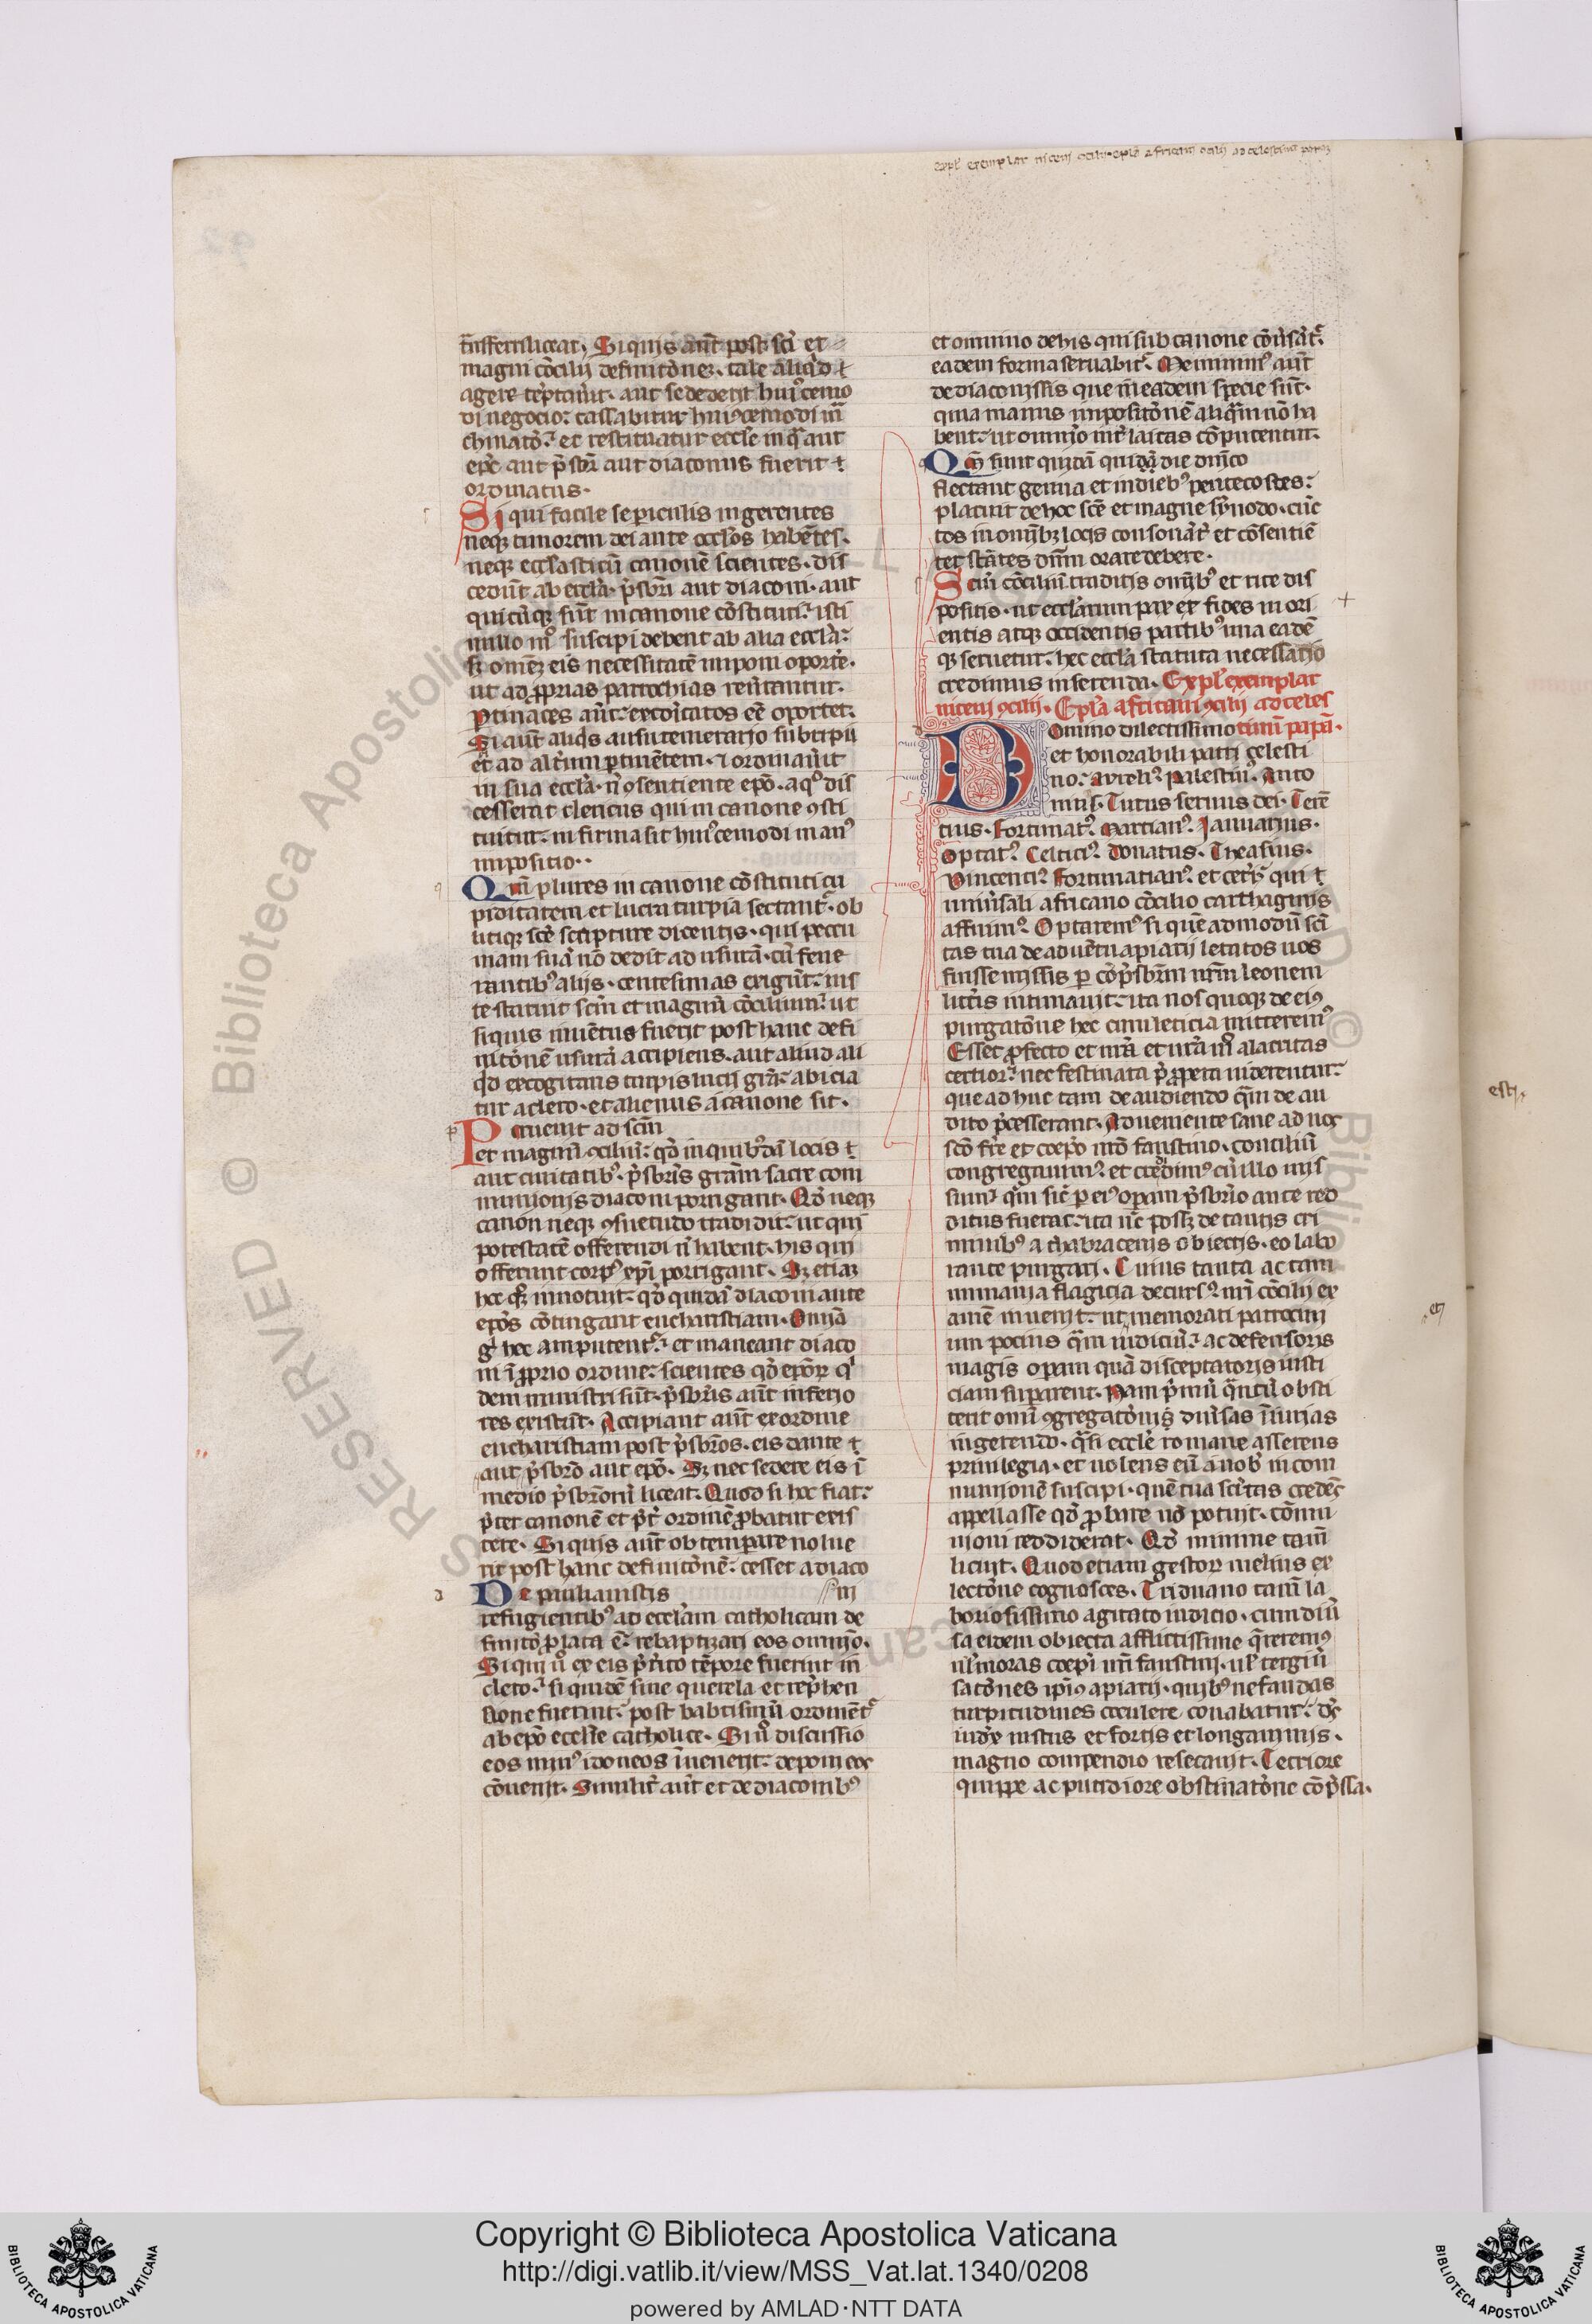 expl' exemplar niceni ɔcilij. epl'a africani ɔcilij ad celestinū papaȝ
t̄nsferrisliceat. Siquis aūt post sc̄i et
magni cōcilij definitōnez. tale aliq'd
agere tēptaūit. aut se dederit hui'cemo
di negocio: cassabitur hui'cemodi m̄a
chinatō. et restituatur eccl'e in q̄ aut
ep̄c aut p̄sbr̄ aut diaconus fuerit
ordinatus.
Si qui facile se periculis ingerentes
neq; timorem dei ante occl'os habētes.
neq; eccl'asticū canonē scientes. dis
cedūt ab eccl'a. p̄sbr̄i aut diaconi. aut
quicūq; sūt in canone cōstituti: isti
nullo mo suscipi debent ab alia eccl'a:
sꝫ omēꝫ eis necessitatē imponi oporte.
ut ad ꝓprias parrochias reūtantur.
Ptinaces aūt: excoicatos eē oportet.
Si aūt aliq's ausu temerario subripu
et ad alt'ium ptinētem. et ordinaūit
in sua eccl'a. nō ɔsentiente epō. a q° dis
cesserat clericus qui in canone ɔsti
tuitur: infirma sit hui'cemodi man'
impositio.
Qm̄ plures in canone cōstituti cu
piditatem et lucra turpia sectant'. ob
litiq; sc̄e scripture dicentis. qui peccu
niam suā nō dedit ad usurā. cū fene
rantib' alijs. centesimas exigūt: ius
te statuit sc̄m et magnū cōcilium: ut
siquis inuētus fuerit post hanc defi
nitōnē usurā accipiens. aut aliud ali
qd excogitans turpis lucij grā: abicia
tur a clero. et alienus a canone sit.
Peruenit ad sc̄m
et magnū ɔciliū: qd in quib'dā locis
aut ciuitatib'. p̄sbr̄is grām sacre com
munionis diaconi porrigant. Qd neq;
canon neq; ɔsuetudo tradidit: ut qui
potestatē offerendi nō habent. his qui
offerunt corp' xp̄i porrigant. Sꝫ etiaꝫ
hec q'ꝫ innotuit: qd quidā diaconi ante
epōs cōtingant eucharistiam. Omīa
g° hec amputent': et maneant diaco
ni ī ꝓprio ordine: scientes qd epōꝝ q'
dem ministri sūt. p̄sbr̄is aūt inferio
res existūt. Accipiant aūt ex ordine
eucharistiam post p̄sbr̄os. eis dante
aut p̄sbr̄o aut epō. Sꝫ nec sedere eis ī
medio p̄sbr̄orū liceat. Quod si hoc fiat:
p̄ter canonē et p̄t' ordinē ꝓbatur exis
tere. Siquis aūt obtemperare nolue
rit post hanc definitōnē: cesset a diaco
De paulianistis ni
refugientib' ad eccl'am catholicam de
finitō ꝓlata ē: rebaptizari eos omīo.
Siqui uō ex eis p̄t'ito tēpore fuerint in
clero: siquidē sine querela et rep̄hen
sione fuerint: post babtismū ordinēt'
ab epō eccl'ie catholice. Siuō discussio
eos min' idoneos īuenerit: deponi eos
cōuenit. Similit' aūt et de diaconib'
et omnino de his qui sub canone cōūsāt':
eadem forma seruabit'. Meminim' aūt
de diaconissis que in eadem specie sūt.
quia manus impositōnē aliq̄m nō ha
bent: ut omnio int' laicas cōputentur.
Qm̄ sunt quidā qui dā die dn̄ico
flectant genua et in dieb' pentecostes:
placuit de hoc sc̄e et magne sȳnodo. cūc
tos in omībꝫ locis consonāt' et cōsentiē
ter stātes dn̄m orare debere.
Sciū cōciliū traditis omīb' et rite dis
positis. ut eccl'arum pax et fides in ori
entis atq; occidentis partib' una eadē
q; seruetur: hec eccl'a statuta necessario
credimus inserenda. Expl' exemplar
niceni ɔcilij. Epl'a africani ɔcilij ad celes
Domino dilectissimo tinū papā.
et honorabili patri celesti
no: aureli'. palestin. Anto
nius. Tutus seruus dei. Terē
tius. Fortunat'. Martian'. Ianuarius.
Optat'. Celtici'. Donatus. Theasius.
Vincenti'. Fortunatian'. et cet'i qui ī
uniūsali africano cōcilio carthaginis
affuim'. Optarem' si quē admodū sc̄i
tas tua de aduētu apiarij letatos uos
fuisse missis p cōp̄sbr̄m nr̄m leonem
litt'is intimauit: ita nos quoq; de ei'
purgatōne hec cum leticia mitterem'
Esset ꝓfecto et nr̄a et ur̄a m° alacritas
certior: nec festinata p̄ꝓpera uiderentur:
que ad huc tam de audiendo q̄m de au
dito p̄cesserant. Adueniente sane ad nos
sc̄o fr̄e et coepō nr̄o faustino. conciliū
congregauim': et credidim' cū illo mis
sum: q̄m sic' p ei' opam p̄sbr̄io ante red
ditus fuerat: ita nūc posse de tantis cri
minib' a thabracenis obiectis. eo labo
rante purgari. Cuius tanta ac tam
inmania flagicia decurs' nr̄i cōcilij ex
amē inuenit: ut memorati patrocini
um pocius q̄m iudiciū: ac defensoris
magis opam quā disceptatoris iusti
ciam supparent. Nam p̄mū q̄ntū obsti
terit omī ɔgregatōnis diūsas īiurias
ingerendo. q̄si eccl'e romane asserens
priuilegia. et uolens eū a nob' in com
munionē suscipi. quē tua sc̄itas credēs
appellasse qd ꝓbare nō potuit. cōmu
nioni reddiderat. Qd minime tam̄
licuit. Quod etiam gestoꝝ melius ex
lectōne cognosces. Triduano tam̄ la
boriosissimo agitato iudicio. cum diū
sa eidem obiecta afflictissime q̄rerem'
ul' moras coepi nr̄i faustini. ul' tergiū
satōnes ip̄i' apiarij. quib' nefandas
turpitudines occulere conabatur: ds
iudex iustus et fortis et longanimis.
magno compendio resecauit. Tetriore
quippe ac putridiore obstinatōne cōp̄ssa.
estj.
Copyright © Biblioteca Apostolica Vaticana
http://digi.vatlib.it/view/MSS_Vat.lat.1340/0208
powered by AMLAD·NTT DATA
BIBLIOTECA APOSTOLICA VATICANA
BIBLIOTECA APOSTOLICA VATICANA